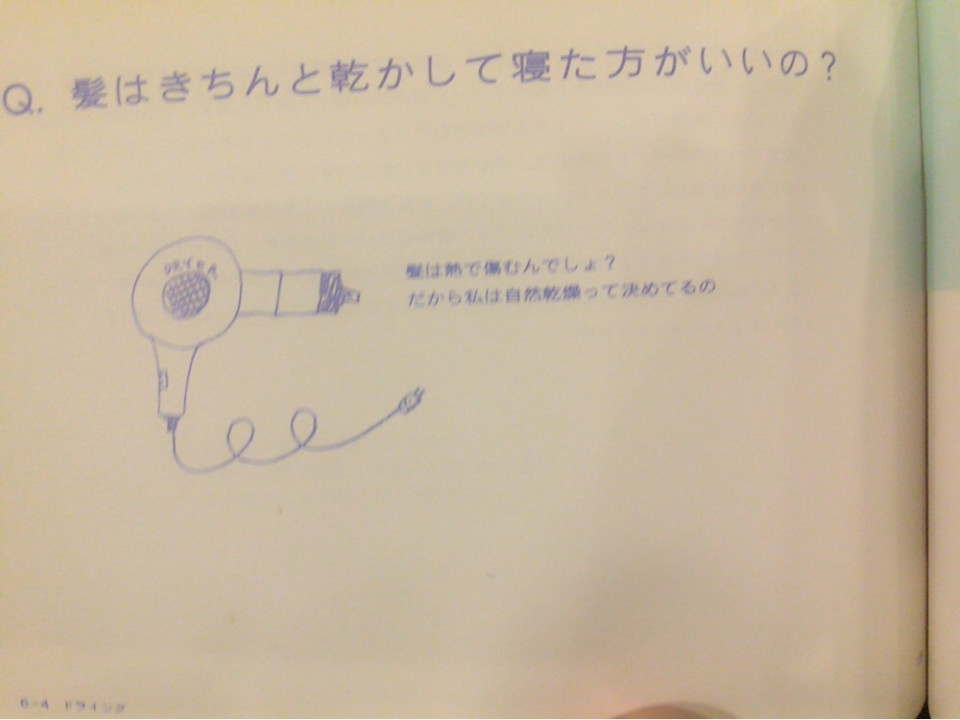 Q. 髪はきちんと乾かして寝た方がいいの？
DRYER
髪は熱で傷むんでしょ？
だから私は自然乾燥って決めてるの
6-4 ドライング